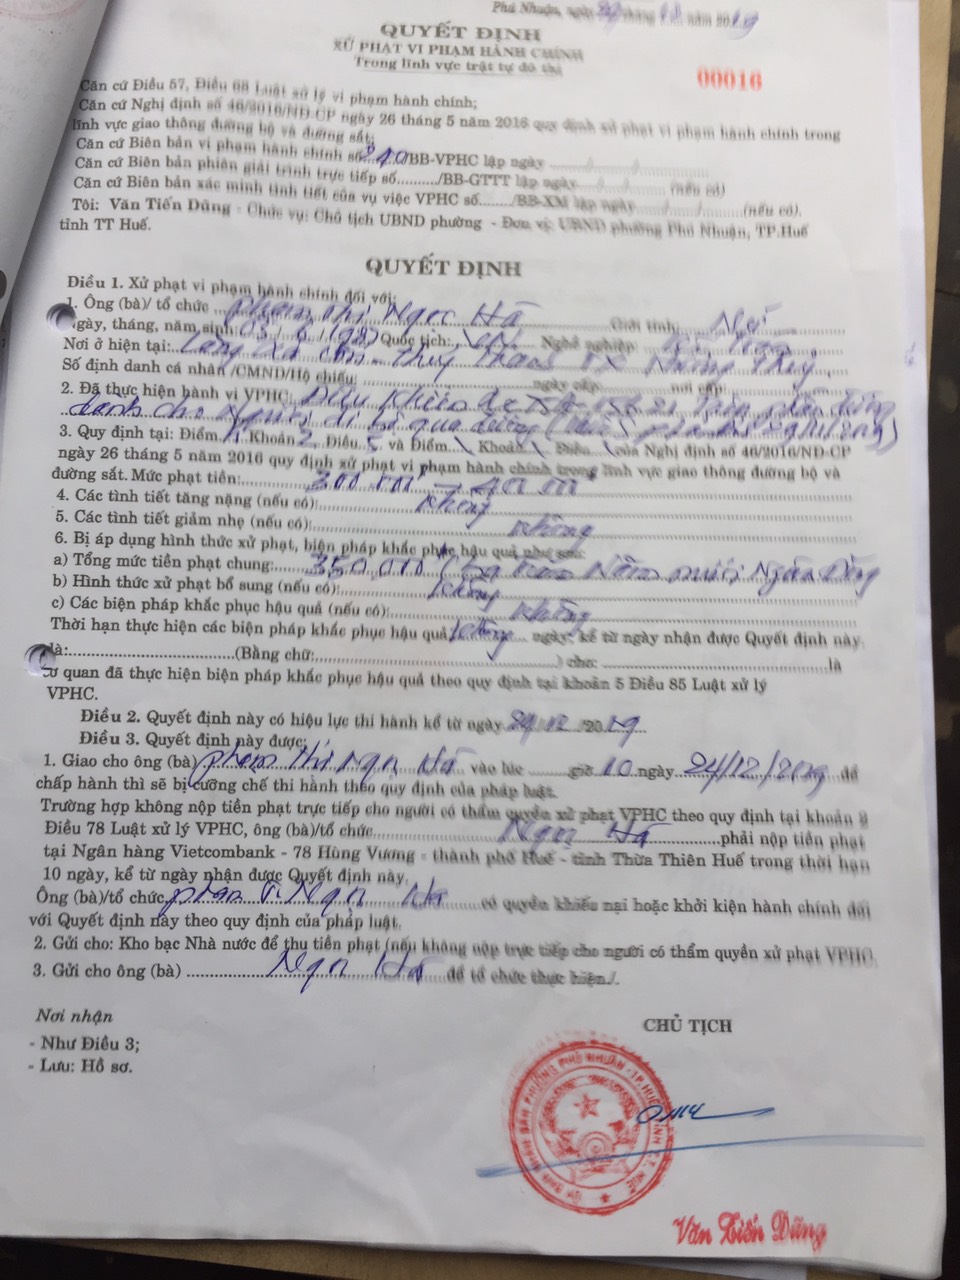 Phú Nhuận, ngày 24 tháng 12 năm 2019
QUYẾT ĐỊNH
XỬ PHẠT VI PHẠM HÀNH CHÍNH
Trong lĩnh vực trật tự đô thị
00016
Căn cứ Điều 57, Điều 68 Luật xử lý vi phạm hành chính;
Căn cứ Nghị định số 46/2016/NĐ-CP ngày 26 tháng 5 năm 2016 quy định xử phạt vi phạm hành chính trong
lĩnh vực giao thông đường bộ và đường sắt;
Căn cứ Biên bản vi phạm hành chính số 240/BB-VPHC lập ngày ....../....../......
Căn cứ Biên bản phiên giải trình trực tiếp số........./BB-GTTT lập ngày....../....../...... (nếu có)
Căn cứ Biên bản xác minh tình tiết của vụ việc VPHC số......../BB-XM lập ngày....../....../......(nếu có).
Tôi: Văn Tiến Dũng - Chức vụ: Chủ tịch UBND phường - Đơn vị: UBND phường Phú Nhuận, TP.Huế
tỉnh TT Huế.
QUYẾT ĐỊNH
Điều 1. Xử phạt vi phạm hành chính đối với:
1. Ông (bà)/ tổ chức Phạm Thị Ngọc Hà Giới tính: Nữ
Ngày, tháng, năm sinh: Quốc tịch: Nghề nghiệp:
Nơi ở hiện tại: Thủy Thanh TX Hương Thủy
Số định danh cá nhân /CMND/Hộ chiếu: ngày cấp: nơi cấp:
2. Đã thực hiện hành vi VPHC: Điều khiển trên phần đường
dành cho Người đi bộ qua đường
3. Quy định tại: Điểm Khoản 2 Điều 5 và Điểm \ Khoản \ Điều \ của Nghị định số 46/2016/NĐ-CP
ngày 26 tháng 5 năm 2016 quy định xử phạt vi phạm hành chính trong lĩnh vực giao thông đường bộ và
đường sắt. Mức phạt tiền: 300
4. Các tình tiết tăng nặng (nếu có): Không
5. Các tình tiết giảm nhẹ (nếu có): Không
6. Bị áp dụng hình thức xử phạt, biện pháp khắc phục hậu quả như sau:
a) Tổng mức tiền phạt chung: 350.000 (Ba trăm Năm mươi Ngàn Đồng
b) Hình thức xử phạt bổ sung (nếu có): Không
c) Các biện pháp khắc phục hậu quả (nếu có): Không
Thời hạn thực hiện các biện pháp khắc phục hậu quả không ngày; kể từ ngày nhận được Quyết định này
là:..............................(Bằng chữ:..............................) cho: .............................. là
cơ quan đã thực hiện biện pháp khắc phục hậu quả theo quy định tại khoản 5 Điều 85 Luật xử lý
VPHC.
Điều 2. Quyết định này có hiệu lực thi hành kể từ ngày 24/12/2019.
Điều 3. Quyết định này được:
1. Giao cho ông (bà) Phạm Thị Ngọc Hà vào lúc ........giờ 10 ngày 24/12/2019 để
chấp hành thì sẽ bị cưỡng chế thi hành theo quy định của pháp luật.
Trường hợp không nộp tiền phạt trực tiếp cho người có thẩm quyền xử phạt VPHC theo quy định tại khoản 2
Điều 78 Luật xử lý VPHC, ông (bà)/tổ chức Ngọc Hà phải nộp tiền phạt
tại Ngân hàng Vietcombank - 78 Hùng Vương - thành phố Huế - tỉnh Thừa Thiên Huế trong thời hạn
10 ngày, kể từ ngày nhận được Quyết định này.
Ông (bà)/tổ chức Phạm Thị Ngọc Hà có quyền khiếu nại hoặc khởi kiện hành chính đối
với Quyết định này theo quy định của pháp luật.
2. Gửi cho: Kho bạc Nhà nước để thu tiền phạt (nếu không nộp trực tiếp cho người có thẩm quyền xử phạt VPHC.
3. Gửi cho ông (bà) Ngọc Hà để tổ chức thực hiện./.
Nơi nhận
- Như Điều 3;
- Lưu: Hồ sơ.
CHỦ TỊCH
ỦY BAN NHÂN DÂN PHƯỜNG PHÚ NHUẬN - TP. HUẾ TỈNH T.T. HUẾ
Văn Tiến Dũng